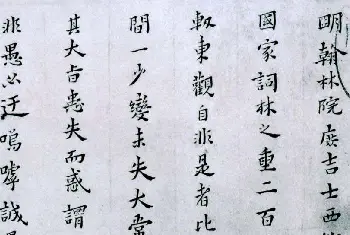 明翰林院庶吉士西
國家詞林之重二百
東觀自非是者比
間一少變未失大常
其大旨患失而惑謂
非愚必迂嗚嘑誠